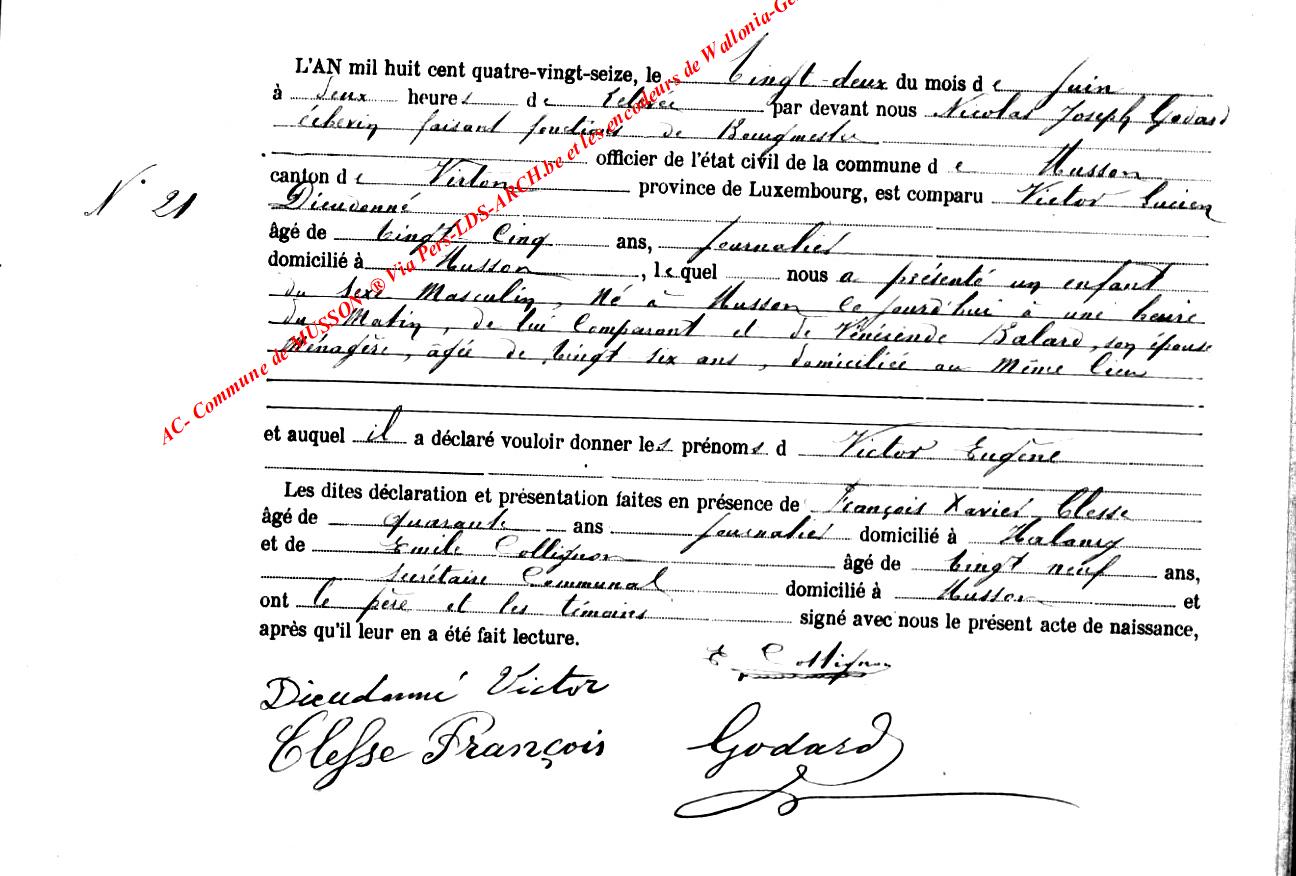 L'AN mil huit cent quatre-vingt-seize, le Vingt-deux du mois de Juin
à deux heures de relevée par devant nous Nicolas Joseph Godard
échevin faisant fonctions de Bourgmestre
officier de l'état civil de la commune de Musson
canton de Virton province de Luxembourg, est comparu Victor Lucien
N° 21
Dieudonné
âgé de Vingt Cinq ans, journalier
domicilié à Musson, lequel nous a présenté un enfant
du sexe Masculin, Né à Musson ce jourd'hui à une heure
du Matin, de lui Comparant et de Vénérende Balard, son épouse
Ménagère, âgée de Vingt six ans, domiciliée au Même lieu
et auquel il a déclaré vouloir donner les prénoms d Victor Eugène
Les dites déclaration et présentation faites en présence de François Xavier Clesse
âgé de quarante ans journalier domicilié à Halanzy
et de Emile Collignon âgé de Vingt neuf ans,
Secrétaire Communal domicilié à Musson et
ont le père et les témoins signé avec nous le présent acte de naissance,
après qu'il leur en a été fait lecture.
E Collignon
Dieudonné Victor
Clesse François
Godard
AC- Commune de MUSSON ® Via Pers-LDS-ARCH.be et les encodeurs de Wallonia-Ge